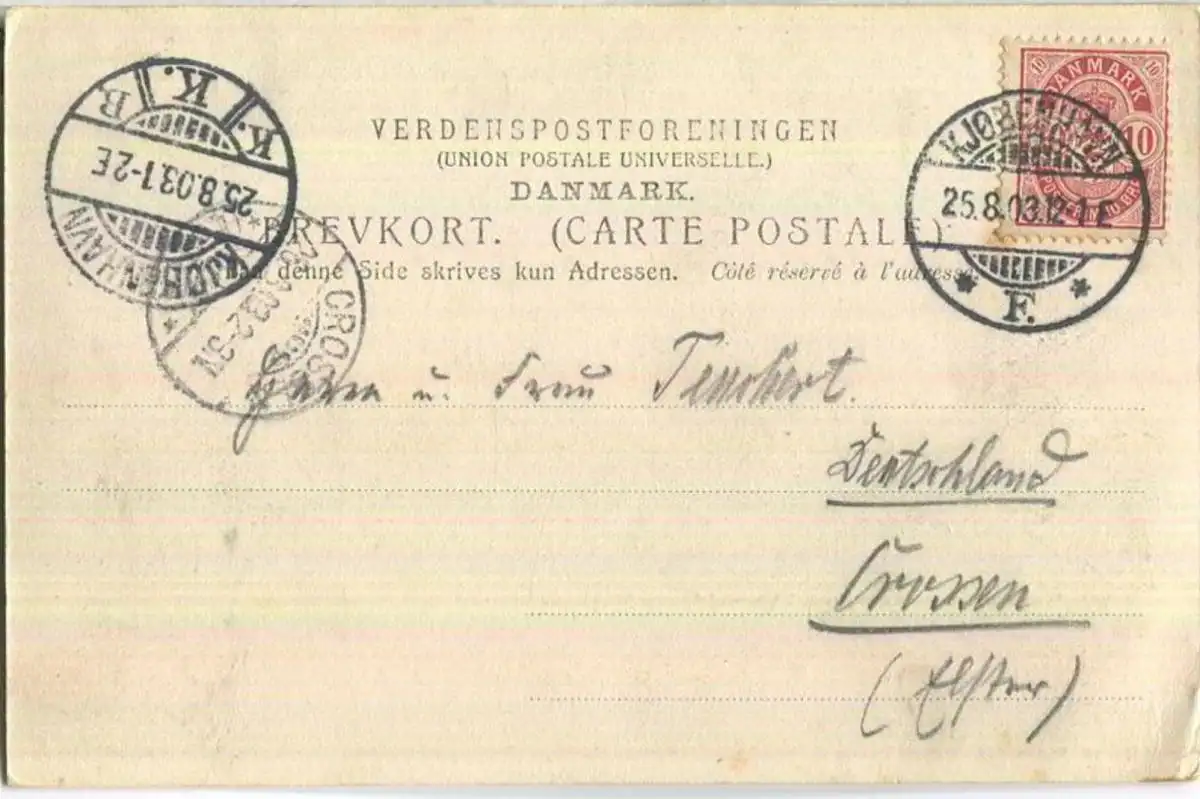 VERDENSPOSTFORENINGEN
(UNION POSTALE UNIVERSELLE.)
DANMARK.
BREVKORT. (CARTE POSTALE)
denne Side skrives kun Adressen. Côté réservé à l'adresse.
DANMARK
10 10
10
KJØBENHAVN
25.8.03.12-1 E
* F. *
K. K. K.
B
25.8.03.1-2E
KJØBENHAVN
CROSSEN
2-3N
Herrn u. Frau
Deutschland
Crossen
(Elster)